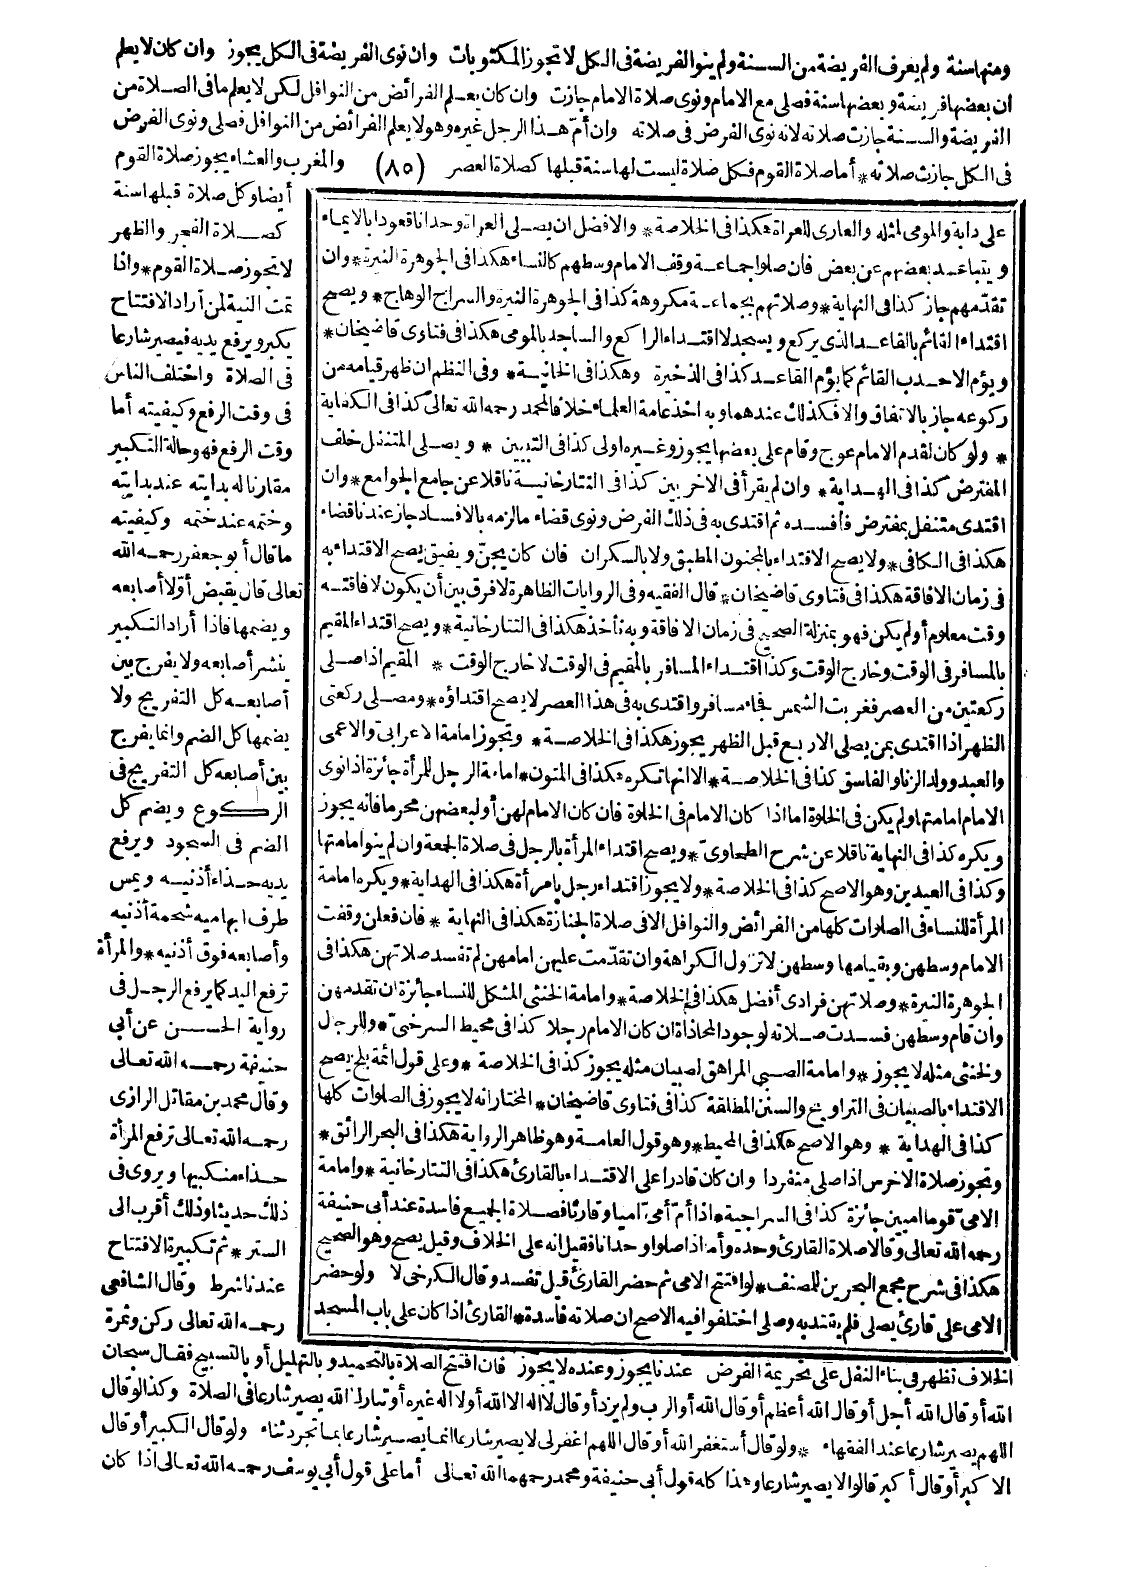 ومنها سنة ولم يعرف الفريضة من السنة ولم ينو الفريضة فى الكل لا تجوز المكتوبات وان نوى الفريضة فى الكل يجوز وان كان لا يعلم
ان بعضها فريضة وبعضها سنة فصلى مع الامام ونوى صلاة الامام جازت وان كان يعلم الفرائض من النوافل لكن لا يعلم ما فى الصلاة من
الفريضة والسنة جازت صلاته لانه نوى الفرض فى صلاته وان أمّ هذا الرجل غيره وهو لا يعلم الفرائض من النوافل فصلى ونوى الفرض
فى الكل جازت صلاته * أما صلاة القوم فكل صلاة ليست لها سنة قبلها كصلاة العصر (٨٥) والمغرب والعشاء يجوز صلاة القوم
أيضا وكل صلاة قبلها سنة
كصلاة الفجر والظهر
لا تجوز صلاة القوم * واذا
تمت النية لمن أراد الافتتاح
يكبر ويرفع يديه فيصير شارعا
فى الصلاة واختلف الناس
فى وقت الرفع وكيفيته أما
وقت الرفع فهو حالة التكبير
مقارنا له بدايته عند بدايته
وختمه عند ختمه وكيفيته
ما قال أبو جعفر رحمه الله
تعالى قال يقبض أولا أصابعه
ويضمها فاذا أراد التكبير
ينشر أصابعه ولا يفرج بين
أصابعه كل التفريج ولا
يضمها كل الضم وانما يفرج
بين أصابعه كل التفريج فى
الركوع ويضم كل
الضم فى السجود ويرفع
يديه حذاء أذنيه ويمس
طرف ابهاميه شحمة أذنيه
وأصابعه فوق أذنيه * والمرأة
ترفع اليد كما يرفع الرجل فى
رواية الحسن عن أبى
حنيفة رحمه الله تعالى
وقال محمد بن مقاتل الرازى
رحمه الله تعالى ترفع المرأة
حذاء منكبيها ويروى فى
ذلك حديثا وذلك أقرب الى
الستر * ثم تكبيرة الافتتاح
عندنا شرط وقال الشافعى
رحمه الله تعالى ركن وثمرة
على دابة والمومى لمثله والعارى للعراة هكذا فى الخلاصة * والافضل ان يصلى العراة وحدانا قعودا بالايماء
ويتباعد بعضهم عن بعض فان صلوا جماعة وقف الامام وسطهم كالنساء هكذا فى الجوهرة النيرة * وان
تقدمهم جاز كذا فى النهاية * وصلاتهم بجماعة مكروهة كذا فى الجوهرة النيرة والسراج الوهاج * ويصح
اقتداء القائم بالقاعد الذى يركع ويسجد لا اقتداء الراكع والساجد بالمومى هكذا فى فتاوى قاضيخان *
ويؤم الاحدب القائم كما يؤم القاعد كذا فى الذخيرة وهكذا فى الخانية * وفى النظم ان ظهر قيامه من
ركوعه جاز بالاتفاق والا فكذلك عندهما وبه اخذ عامة العلماء خلافا لمحمد رحمه الله تعالى كذا فى الكفاية
* ولو كان لقدم الامام عوج وقام على بعضها يجوز وغيره اولى كذا فى التبيين * ويصلى المتنفل خلف
المفترض كذا فى الهداية * وان لم يقرأ فى الاخريين كذا فى التتارخانية ناقلا عن جامع الجوامع * وان
اقتدى متنفل بمفترض فأفسده ثم اقتدى به فى ذلك الفرض ونوى قضاء ما لزمه بالافساد جاز عندنا قضاء
هكذا فى الكافى * ولا يصح الاقتداء بالمجنون المطبق ولا بالسكران فان كان يجنّ ويفيق يصح الاقتداء به
فى زمان الافاقة هكذا فى فتاوى قاضيخان * قال الفقيه وفى الروايات الظاهرة لا فرق بين أن يكون لافاقته
وقت معلوم أو لم يكن فهو بمنزلة الصحيح فى زمان الافاقة وبه نأخذ هكذا فى التتارخانية * ويصح اقتداء المقيم
بالمسافر فى الوقت وخارج الوقت وكذا اقتداء المسافر بالمقيم فى الوقت لا خارج الوقت * المقيم اذا صلى
ركعتين من العصر فغربت الشمس فجاء مسافر واقتدى به فى هذا العصر لا يصح اقتداؤه * ومصلى ركعتى
الظهر اذا اقتدى بمن يصلى الاربع قبل الظهر يجوز هكذا فى الخلاصة * وتجوز امامة الاعرابى والاعمى
والعبد وولد الزنا والفاسق كذا فى الخلاصة * الا انها تكره هكذا فى المتون * امامة الرجل للمرأة جائزة اذا نوى
الامام امامتها ولم يكن فى الخلوة اما اذا كان الامام فى الخلوة فان كان الامام لهن أو لبعضهن محرما فانه يجوز
ويكره كذا فى النهاية ناقلا عن شرح الطحاوىّ * ويصح اقتداء المرأة بالرجل فى صلاة الجمعة وان لم ينو امامتها
وكذا فى العيدين وهو الاصح كذا فى الخلاصة * ولا يجوز اقتداء رجل بامرأة هكذا فى الهداية * ويكره امامة
المرأة للنساء فى الصلوات كلها من الفرائض والنوافل الا فى صلاة الجنازة هكذا فى النهاية * فان فعلن وقفت
الامام وسطهن وبقيامها وسطهن لا تزول الكراهة وان تقدّمت عليهن امامهن لم تفسد صلاتهن هكذا فى
الجوهرة النيرة * وصلاتهن فرادى أفضل هكذا فى الخلاصة * وامامة الخنثى المشكل للنساء جائزة ان تقدمهن
وان قام وسطهن فسدت صلاته لوجود المحاذاة ان كان الامام رجلا كذا فى محيط السرخسىّ * وللرجال
ولخنثى مثله لا يجوز * وامامة الصبى المراهق لصبيان مثله يجوز كذا فى الخلاصة * وعلى قول ائمة بلخ يصح
الاقتداء بالصبيان فى التراويح والسنن المطلقة كذا فى فتاوى قاضيخان * المختار انه لا يجوز فى الصلوات كلها
كذا فى الهداية * وهو الاصح هكذا فى المحيط * وهو قول العامة وهو ظاهر الرواية هكذا فى البحر الرائق *
وتجوز صلاة الاخرس اذا صلى منفردا وان كان قادرا على الاقتداء بالقارئ هكذا فى التتارخانية * وامامة
الامىّ قوما اميين جائزة كذا فى السراجية * اذا أمّ أمىّ أميا وقارئا فصلاة الجميع فاسدة عند أبى حنيفة
رحمه الله تعالى وقالا صلاة القارئ وحده وأما اذا صلوا وحدانا فقيل انه على الخلاف وقيل يصح وهو الصحيح
هكذا فى شرح مجمع البحرين للمصنف * لو افتتح الامى ثم حضر القارئ قيل تفسد وقال الكرخى لا ولو حضر
الامى على قارئ يصلى فلم يقتد به وصلى اختلفوا فيه الاصح ان صلاته فاسدة * القارئ اذا كان على باب المسجد
الخلاف تظهر فى بناء النفل على تحريمة الفرض عندنا يجوز وعنده لا يجوز فان افتتح الصلاة بالتحميد وبالتهليل أو بالتسبيح فقال سبحان
الله أو قال الله أجل أو قال الله أعظم أو قال الله أو الرب ولم يزد أو قال لا اله الا الله أو لا اله غيره أو تبارك الله يصير شارعا فى الصلاة وكذا لو قال
اللهم يصير شارعا عند الفقهاء * ولو قال أستغفر الله أو قال اللهم اغفر لى لا يصير شارعا انما يصير شارعا بما تجرد ثناء ولو قال الكبير أو قال
الاكبر أو قال أكبر قالوا لا يصير شارعا وهذا كله قول أبى حنيفة ومحمد رحمهما الله تعالى أما على قول أبى يوسف رحمه الله تعالى اذا كان